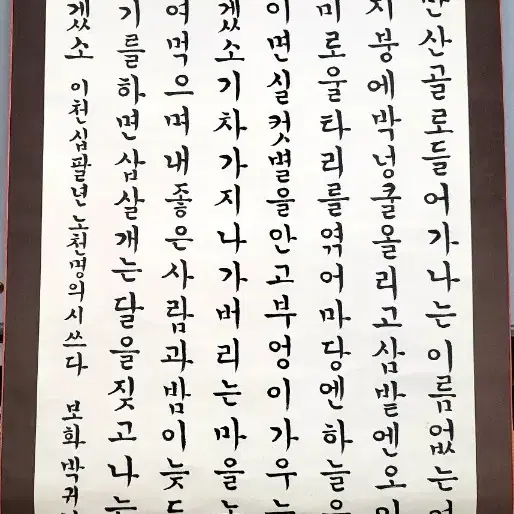 산골로들어가나는이름없는
지붕에박넝쿨올리고삼밭엔오이
미로울타리를엮어마당엔하늘을
이면실컷별을안고부엉이가우는
겠소기차가지나가버리는마을
여먹으며내좋은사람과밤이늦도
기를하면삽살개는달을짖고나는
겠소 이천십팔년 노천명의 시 쓰다 보화 박귀